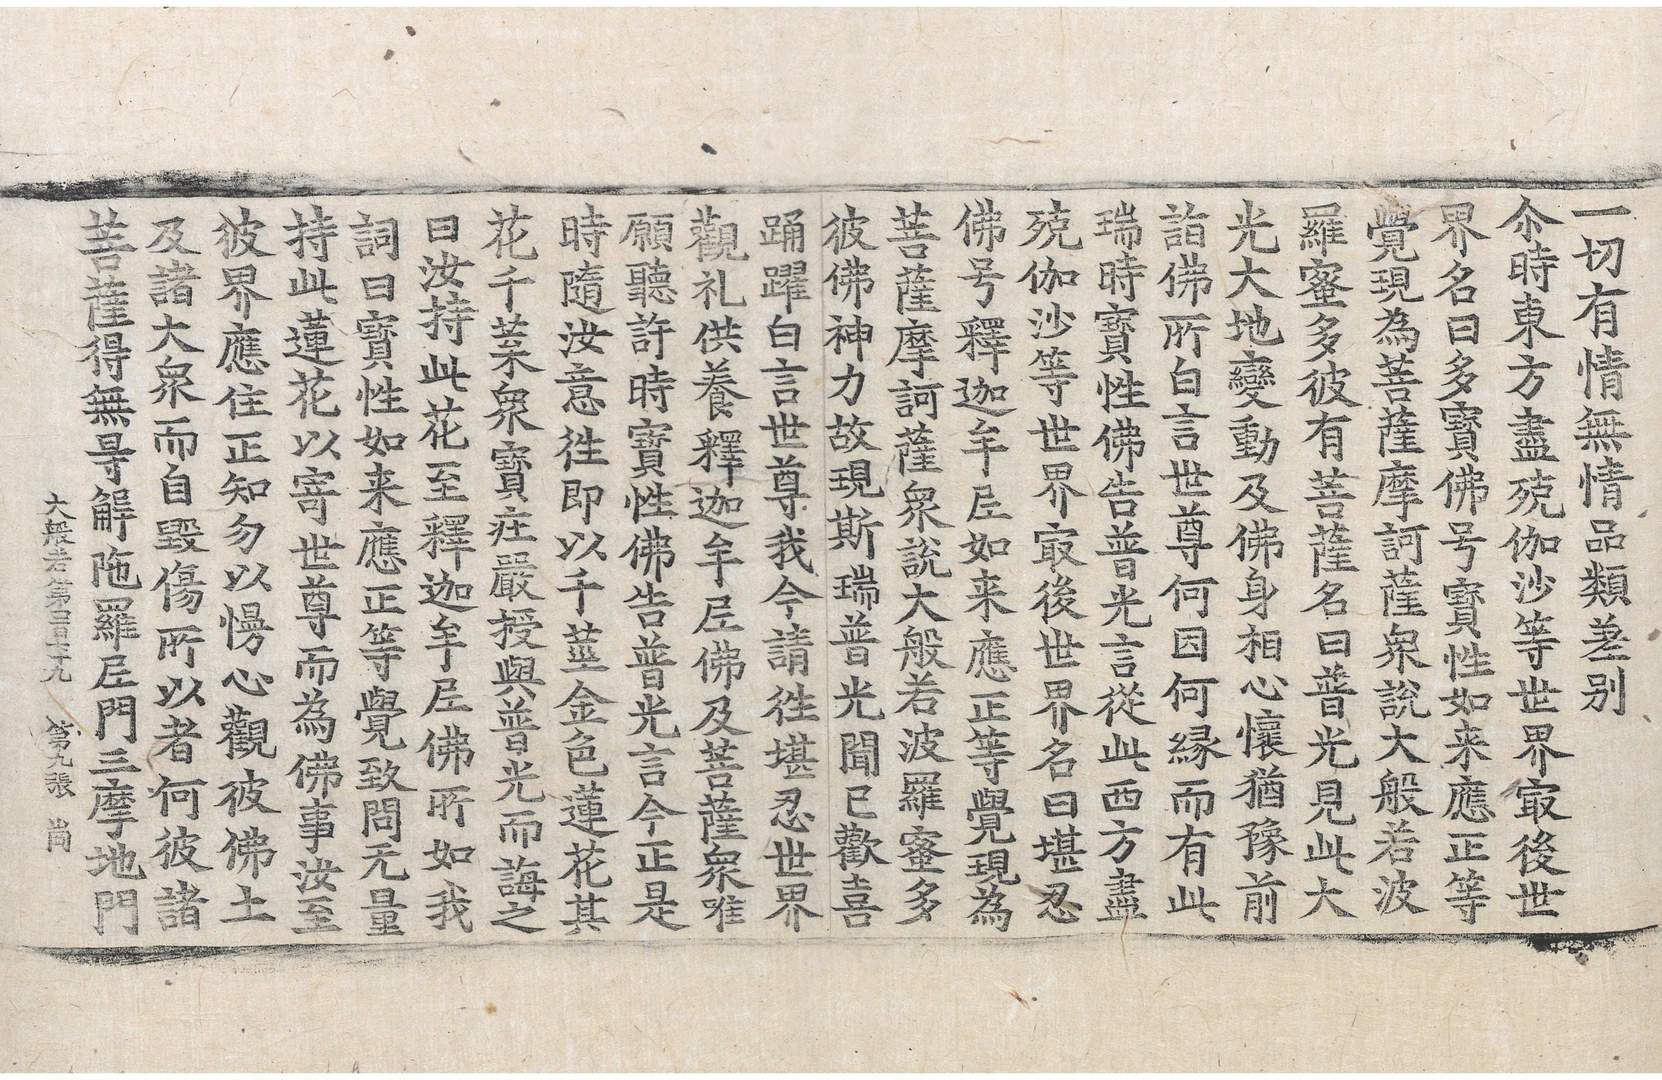 一切有情無情品類差別
尒時東方盡殑伽沙等世界㝡後世
界名曰多寶佛号寶性如来應正等
覺現為菩薩摩訶薩衆說大般若波
羅蜜多彼有菩薩名曰普光見此大
光大地變動及佛身相心懷猶豫前
詣佛所白言世尊何因何緣而有此
瑞時寶性佛告普光言從此西方盡
殑伽沙等世界㝡後世界名曰堪忍
佛号釋迦牟尼如来應正等覺現為
菩薩摩訶薩衆說大般若波羅蜜多
彼佛神力故現斯瑞普光聞已歡喜
踊躍白言世尊我今請徃堪忍世界
觀礼供養釋迦牟尼佛及菩薩衆唯
願聽許時寶性佛告普光言今正是
時隨汝意徃即以千莖金色蓮花其
花千葉衆寶莊嚴授與普光而誨之
曰汝持此花至釋迦牟尼佛所如我
詞曰寶性如来應正等覺致問无量
持此蓮花以寄世尊而為佛事汝至
彼界應住正知勿以慢心觀彼佛土
及諸大衆而自毀傷所以者何彼諸
菩薩得無㝵解陁羅尼門三摩地門
大般若第四百七十九 第九張 尚